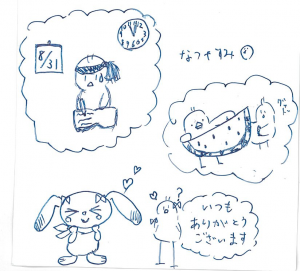 8/31
なつやすみ
いつも
ありがとう
ございます